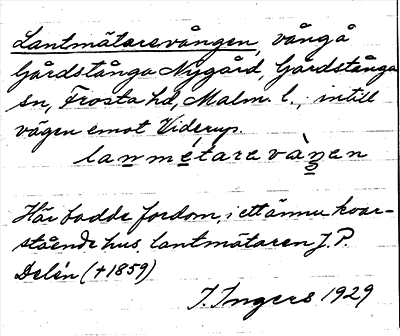 Lantmätarevången, vång å
Gårdstånga Nygård, Gårdstånga
sn, Frosta hd, Malm. l., intill
vägen emot Viderup.
lanmétarevàṉen
Här bodde fordom, i ett ännu kvar-
stående hus, lantmätaren J. P.
Delén (†1859)
I. Ingers 1929